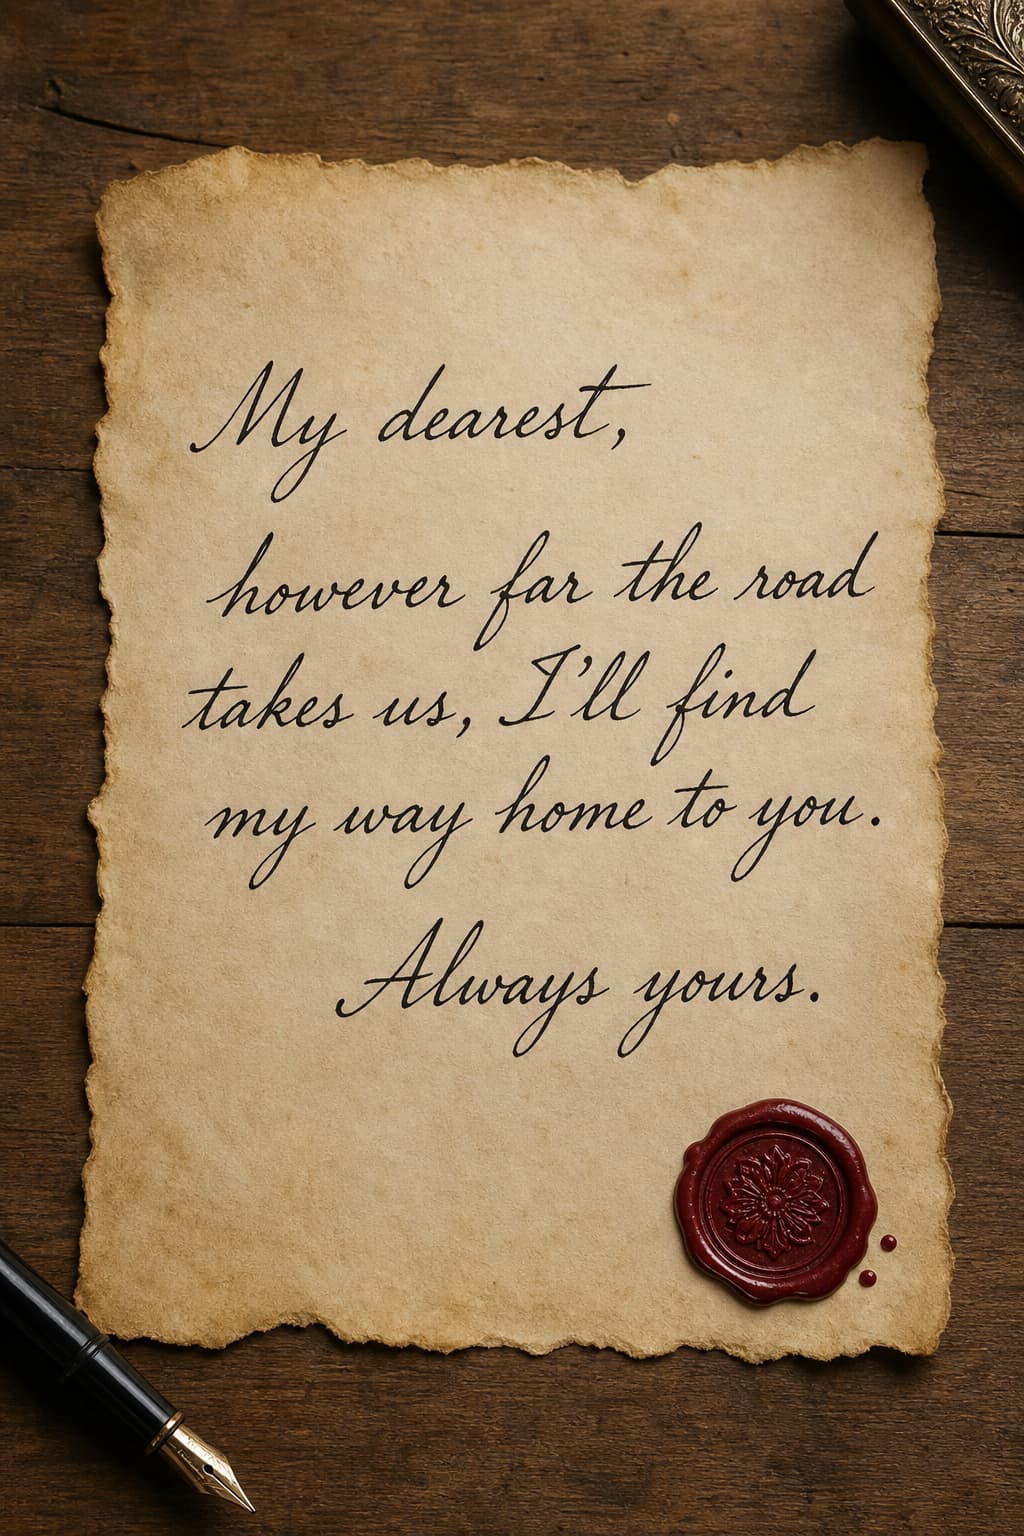 My dearest,
however far the road
takes us, I'll find
my way home to you.
Always yours.